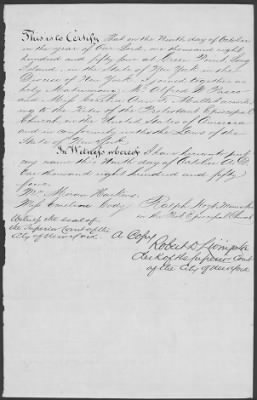 This is to Certify That on the Ninth day of October
in the year of Our Lord, one thousand eight
hundred and fifty four at Green Point Long
Island, in the State of New York in the
Diocese of New York, I joined together in
holy Matrimony Mr Alfred W.
and Miss Ann accord-
ing to the Rites of the Protestant Episcopal
Church in the United States of America
and in conformity with the Laws of the
State of New York.
In Witness whereof I have hereunto put
my name this Ninth day of October A.D.
One thousand eight hundred and fifty
four.
Ralph Hoyt
in the Prot Episcopal Church
Witness the seal of
the Superior Court of the
City of New York.
A Copy
Robert D
Clerk of the Superior Court
of the City of New York